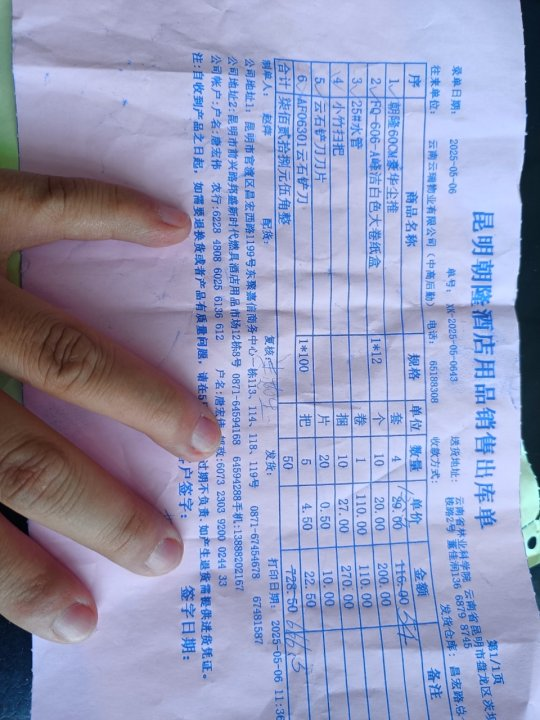 昆明朝隆酒店用品销售出库单
第1/1页
录单日期: 2025-05-06 单号: XK-2025-05-0643 送货地址: 云南省林业科学院 云南省昆明市盘龙区茨坝
往来单位: 云南云瑞物业有限公司 (中高后勤) 电话: 65188308 收款方式: 发货仓库: 昌宏路总
序 商品名称 规格 单位 数量 单价 金额 备注
1 朝隆60CM豪华尘推 套 4
2 FQ-606-A峰洁白色大卷纸盒 1*12 个 10 20.00 200.00
3 25#水管 卷 1 110.00 110.00
4 小竹扫把 捆 10 27.00 270.00
5 云石铲刀刀片 1*100 片 20 0.50 10.00
6 AF06301云石铲刀 把 5 4.50 22.50
合计 柒佰贰拾捌元伍角整 50 728.50
制单人: 赵萍 配货: 复核: 发货: 打印日期: 2025-05-06 11:36
公司地址1: 昆明市官渡区昌宏西路1199号东聚嘉信商务中心一栋113、114、118、119号 0871-67454678 67481587
公司地址2: 昆明市前兴路邦盛新时代燃具酒店用品市场12栋8号 0871-64594168 64594288手机:13888202167
公司帐户:户名:唐宏伟 农行:6228 4808 6025 6136 612 户名:唐宏伟 6073 2303 9200 0244 33
注:自收到产品之日起, 如需要退换货或者产品有质量问题, 请在5 过期不负责.如产生退货需提供送货凭证。
户签字: 签字日期: